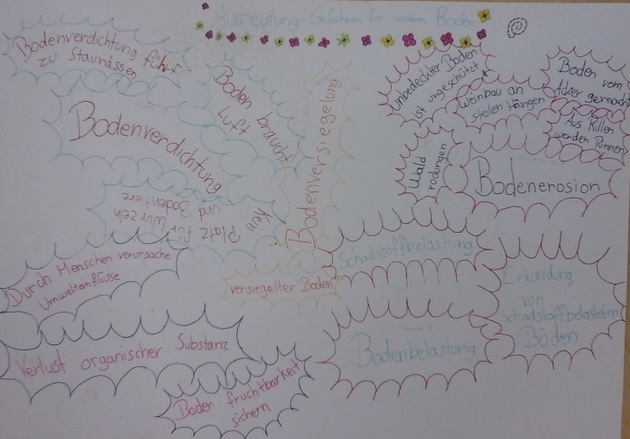 Ausbeutung-Gefahren für unseren Boden
Bodenverdichtung führt
zu Staunässen
Boden braucht
Luft
Bodenverdichtung
kein
Platz für Wurzeln
und Bodentiere
Bodenversiegelung
versiegelter Boden
unbedeckter Boden
ist ungeschützt
Weinbau an
steilen Hängen
Boden vom
Acker gemacht
Aus Rillen
werden Rinnen
Wald
rodungen
Bodenerosion
Schadstoffbelastung
Erkundung
von
schadstoffbelasteten
Böden
Bodenbelastung
Durch Menschen verursachte
Umwelteinflüsse
Verlust organischer Substanz
Boden fruchtbarkeit
sichern